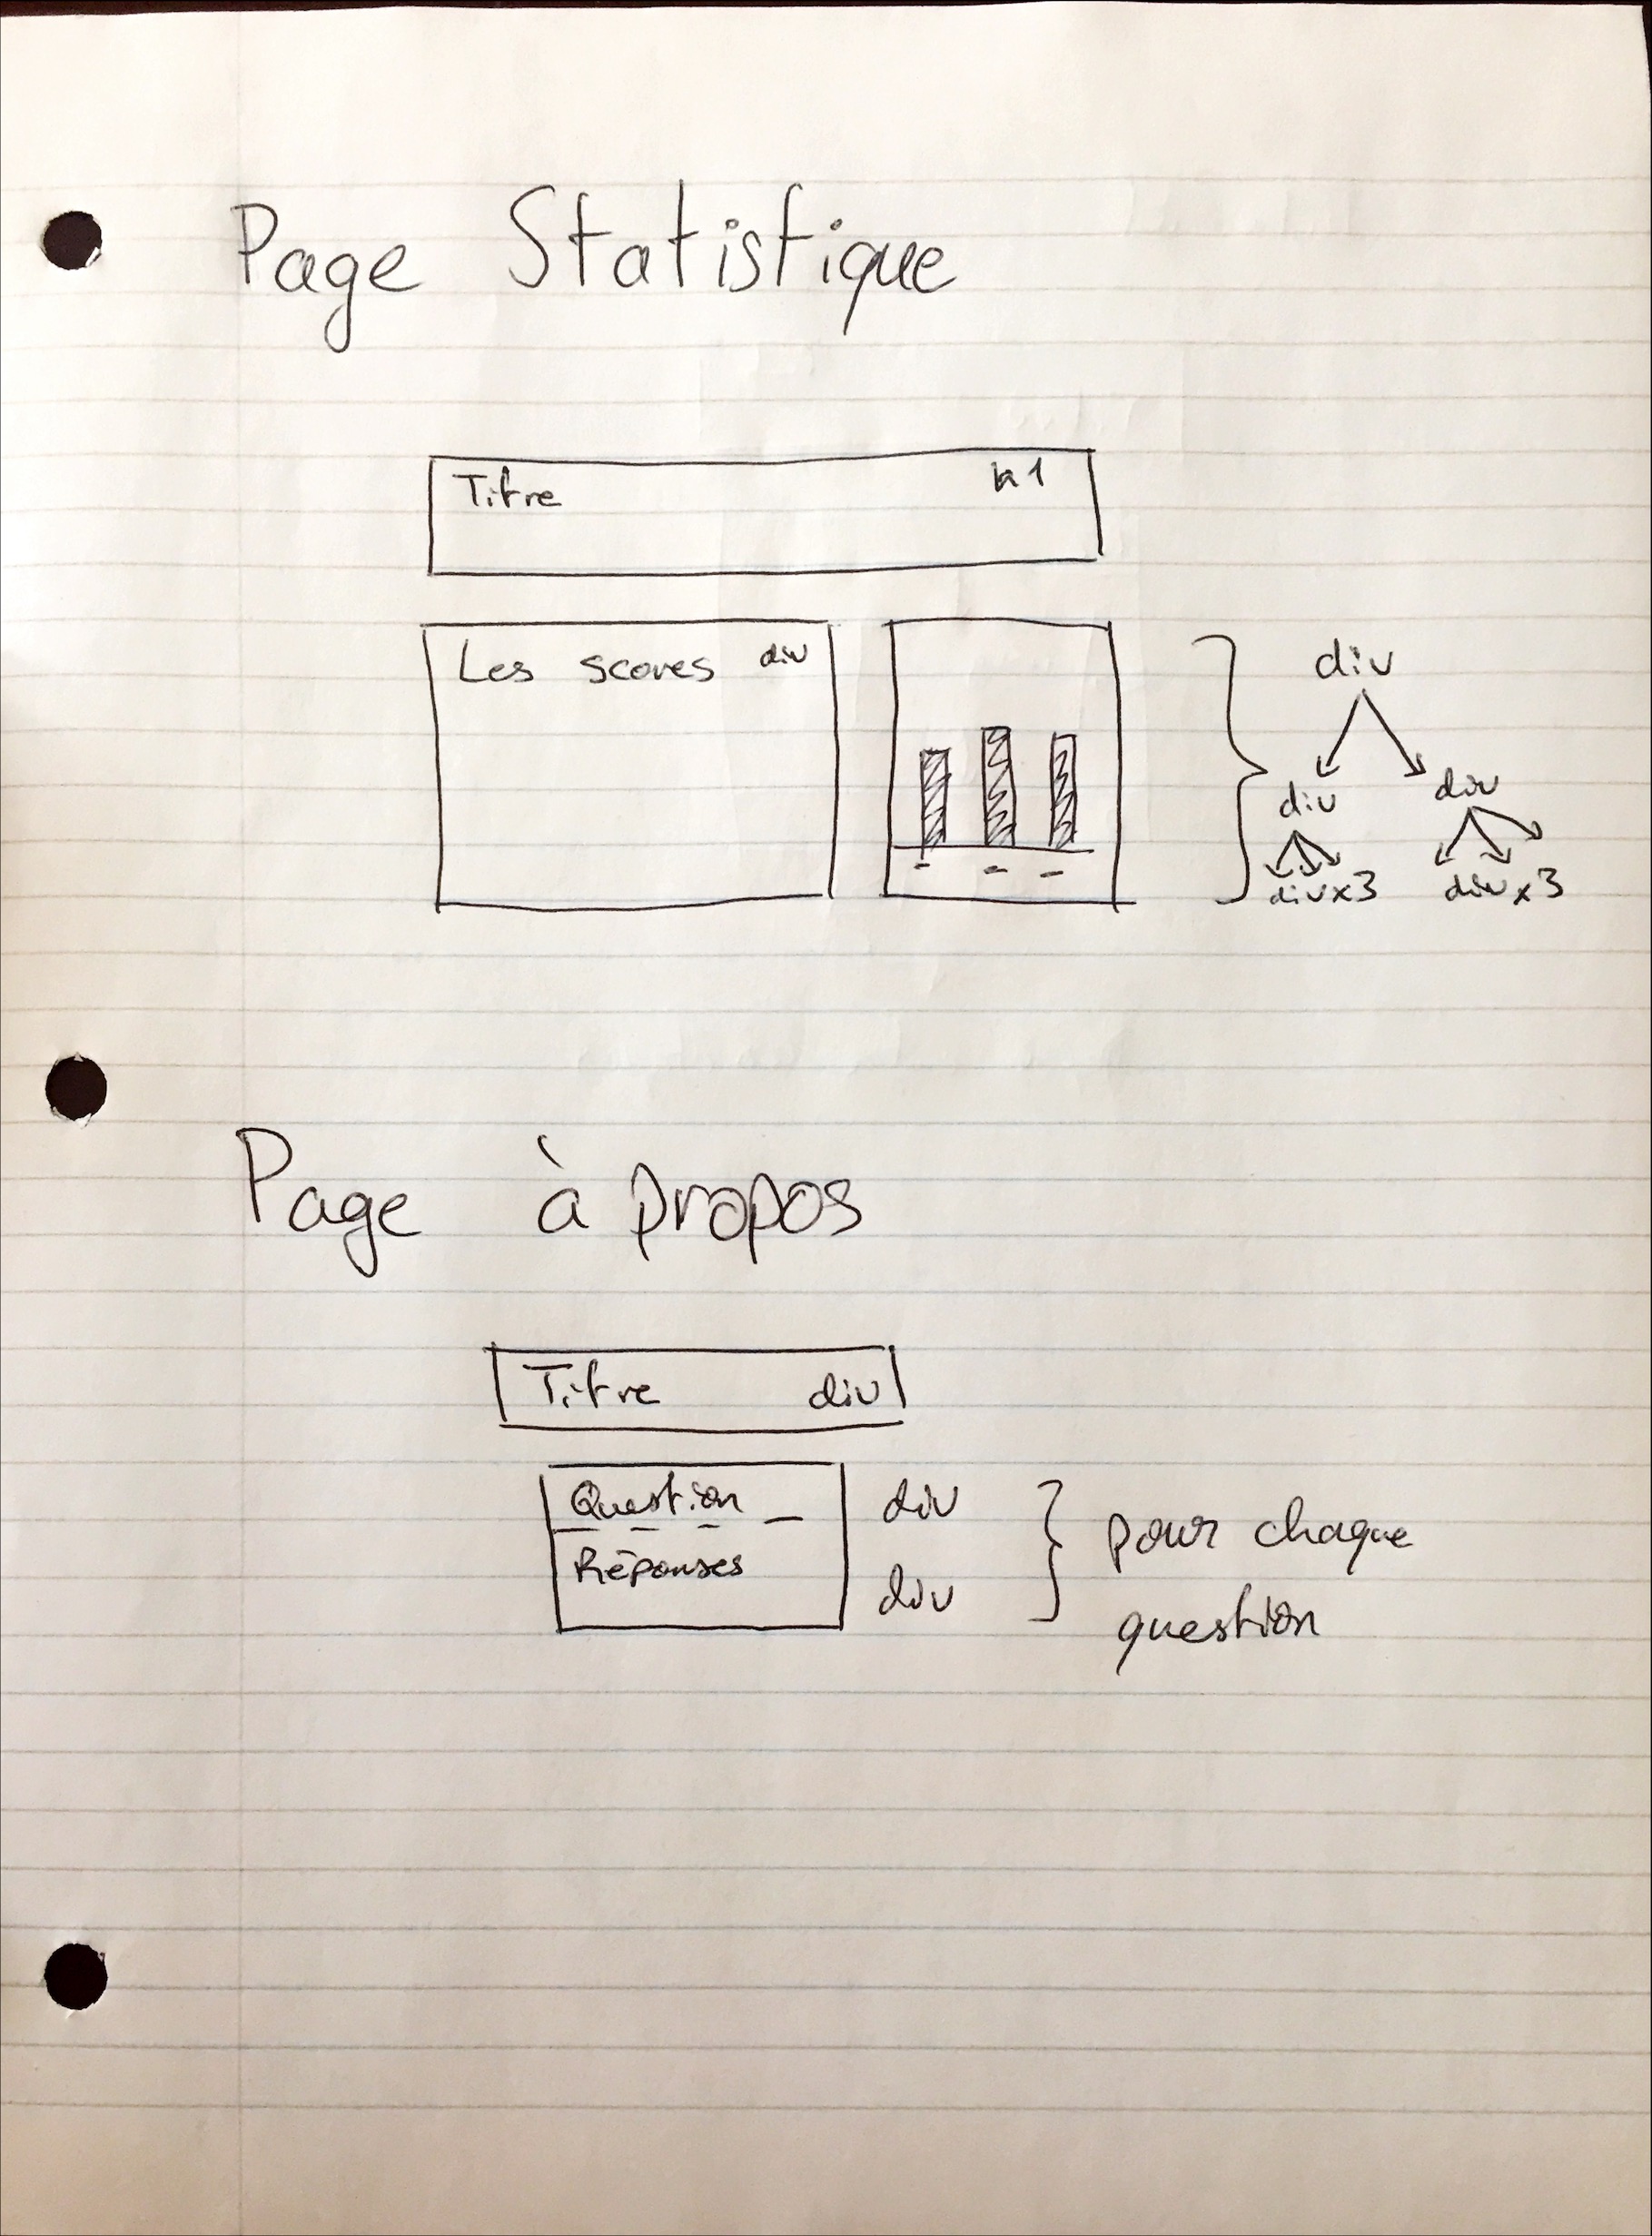 Page Statistique
Titre h1
Les scores div
div
div div
divx3 divx3
Page à propos
Titre div
Question div
Réponses div
pour chaque
question